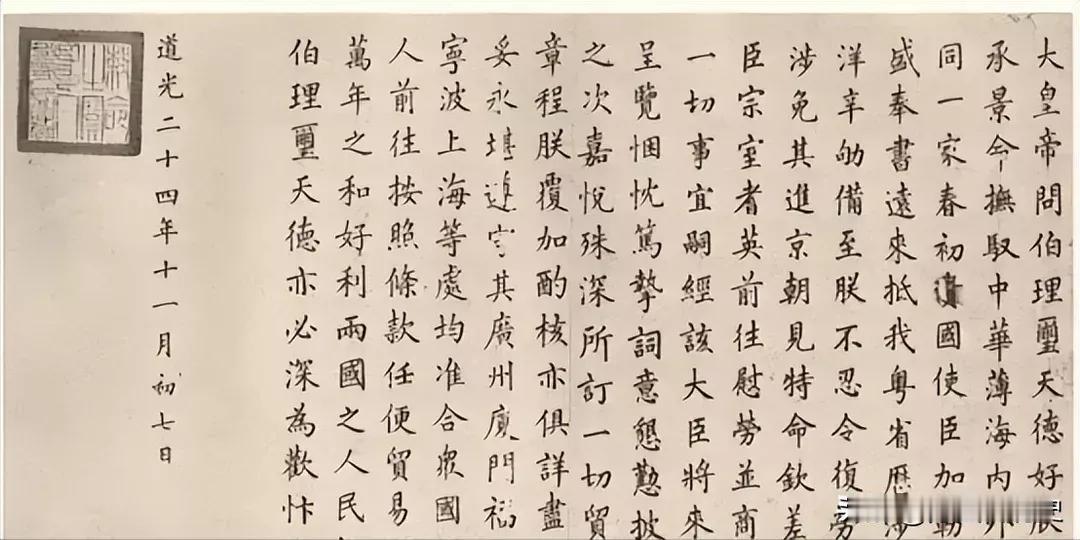 大皇帝問伯理璽天德好
承景命撫馭中華薄海內外
同一家春初國使臣加勒
盛奉書遠來抵我粵省歷涉
洋辛劬備至朕不忍令復勞
涉免其進京朝見特命欽差
臣宗室耆英前往慰勞並商
一切事宜嗣經該大臣將來
呈覽悃忱篤摯詞意懇懃披
之次嘉悅殊深所訂一切貿
章程朕覆加酌核亦俱詳盡
妥永堪遵守其廣州廈門福
寧波上海等處均准合眾國
人前往按照條款任便貿易
萬年之和好利兩國之人民
伯理璽天德亦必深為歡忭
道光二十四年十一月初七日